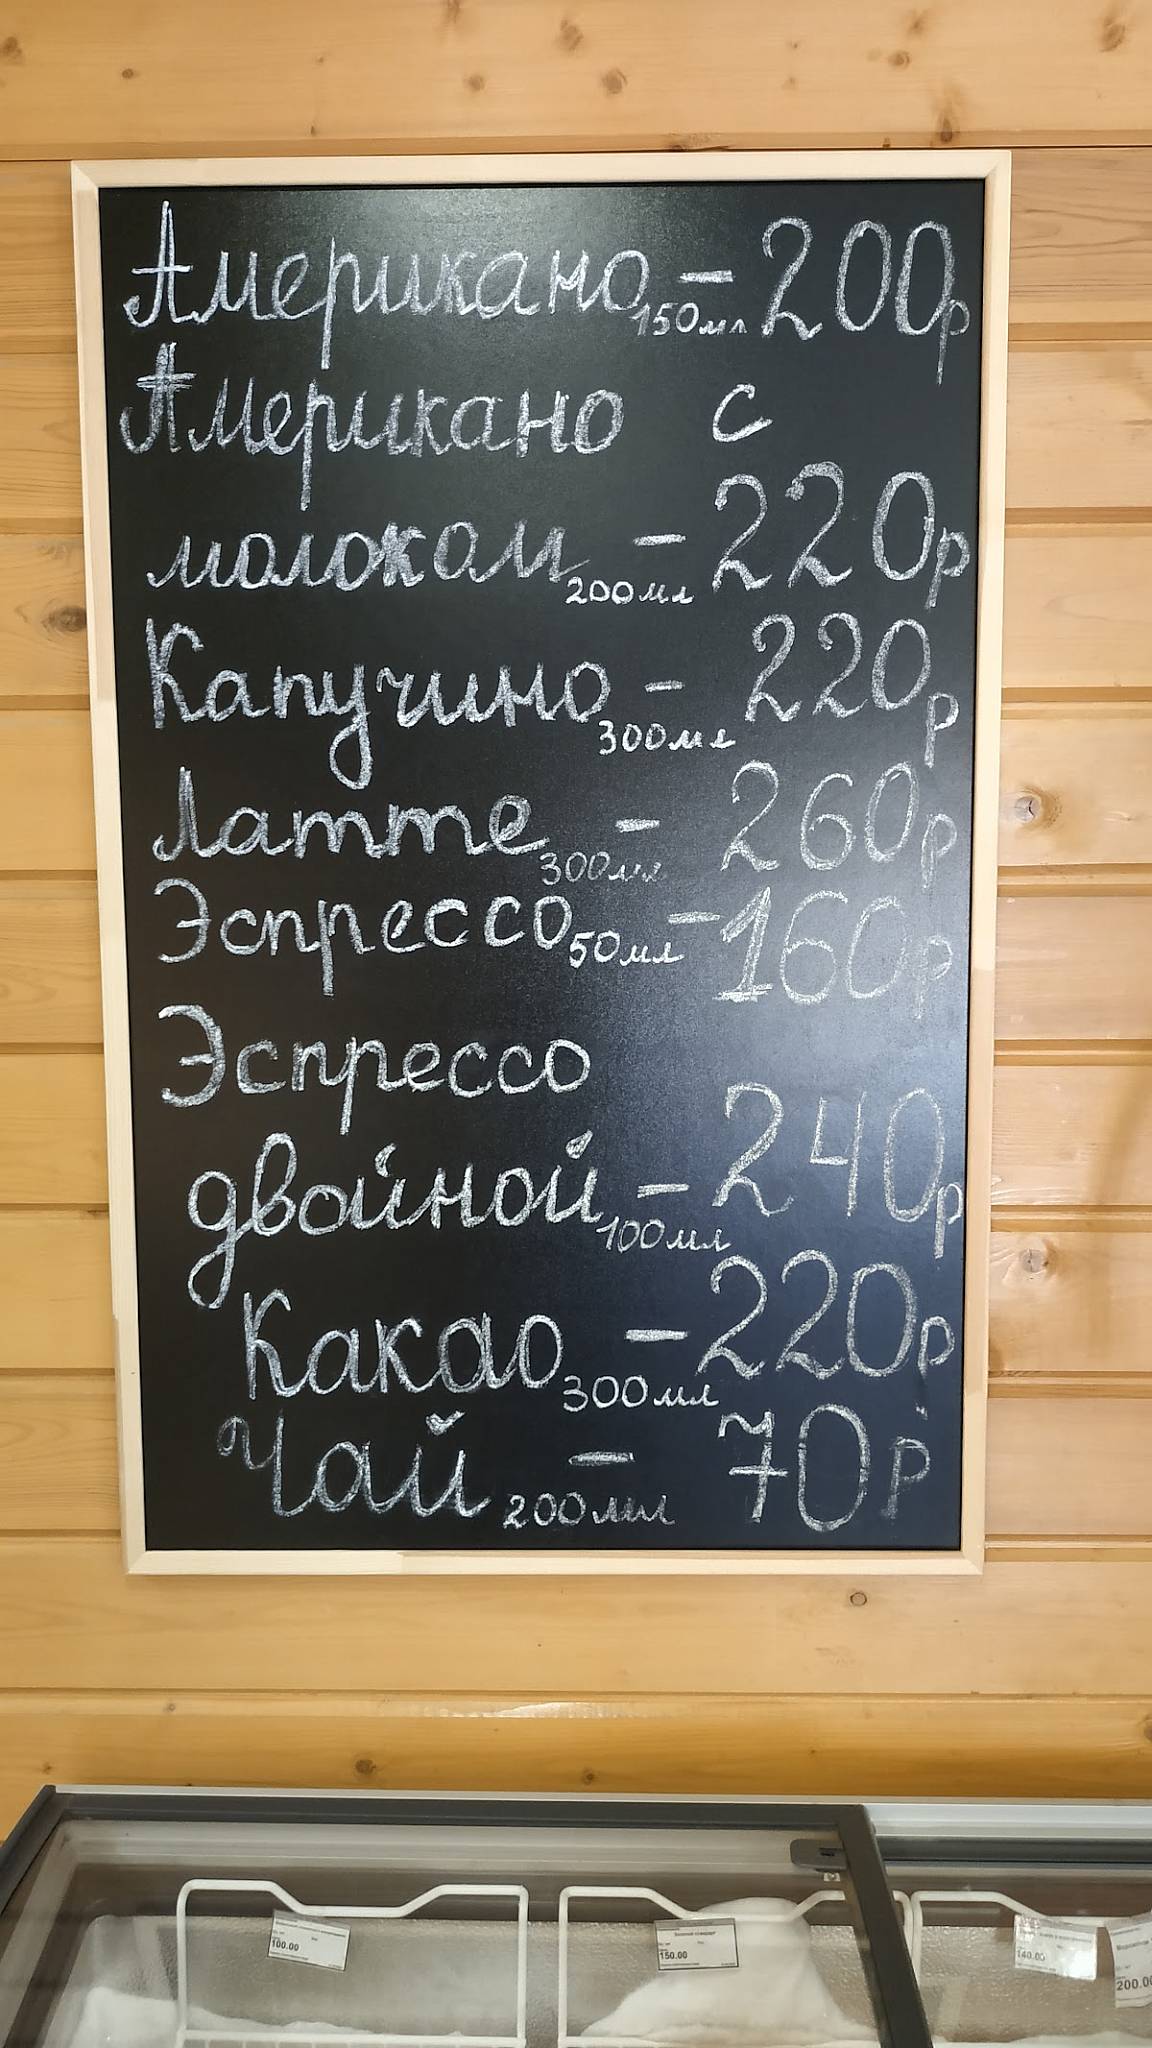 Американо 150мл - 200р
Американо с
молоком 200мл - 220р
Капучино 300мл - 220р
Латте 300мл - 260р
Эспрессо 50мл - 160р
Эспрессо
двойной 100мл - 240р
Какао 300мл - 220р
Чай 200мл - 70р
100.00
150.00
140.00
200.00